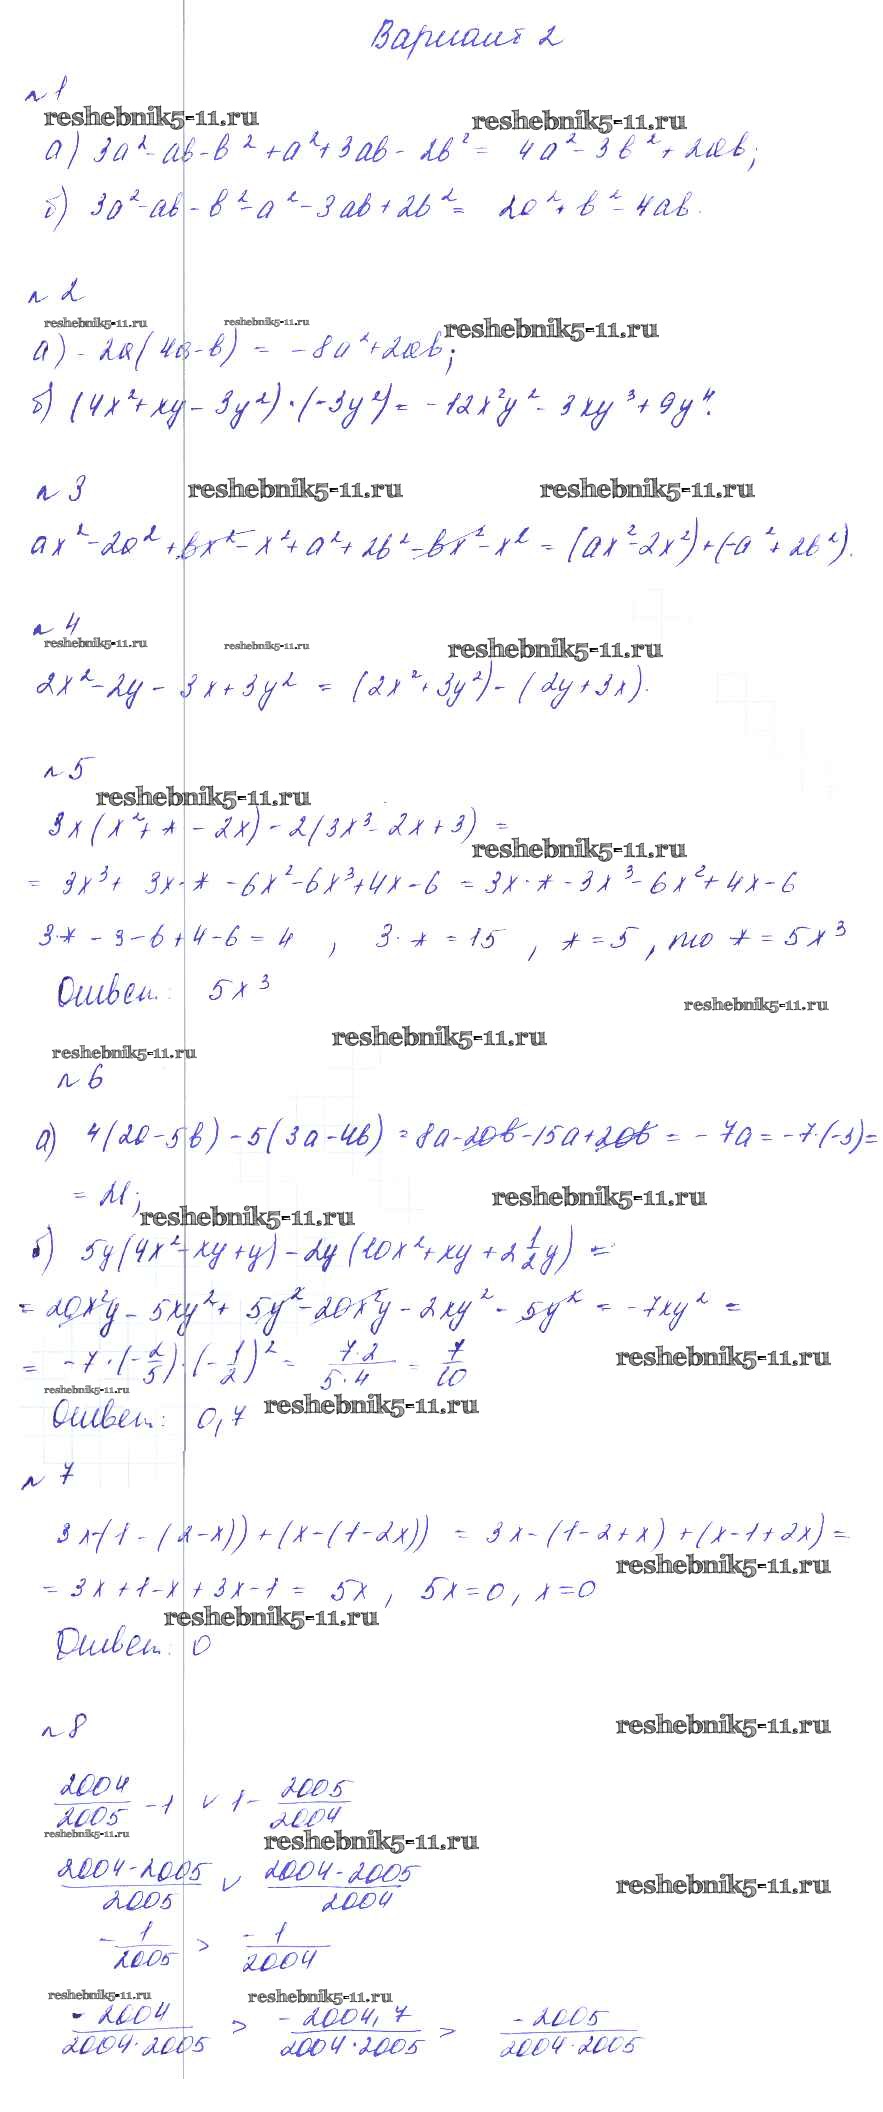 Вариант 2
№1
reshebnik5-11.ru reshebnik5-11.ru
а) 3a² - ab - b² + a² + 3ab - 2b² = 4a² - 3b² + 2ab;
б) 3a² - ab - b² - a² - 3ab + 2b² = 2a² + b² - 4ab.
№2
reshebnik5-11.ru reshebnik5-11.ru reshebnik5-11.ru
а) -2a(4a-b) = -8a² + 2ab;
б) (4x² + xy - 3y²)·(-3y²) = -12x²y² - 3xy³ + 9y⁴.
№3 reshebnik5-11.ru reshebnik5-11.ru
ax² - 2a² + bx² - x² + a² + 2b² - bx² - x² = (ax² - 2x²) + (-a² + 2b²).
№4
reshebnik5-11.ru reshebnik5-11.ru reshebnik5-11.ru
2x² - 2y - 3x + 3y² = (2x² + 3y²) - (2y + 3x).
№5
reshebnik5-11.ru
3x(x² + * - 2x) - 2(3x³ - 2x + 3) =
reshebnik5-11.ru
= 3x³ + 3x·* - 6x² - 6x³ + 4x - 6 = 3x·* - 3x³ - 6x² + 4x - 6
3·* - 3 - 6 + 4 - 6 = 4, 3·* = 15, * = 5, то * = 5x³
Ответ: 5x³
reshebnik5-11.ru
reshebnik5-11.ru
reshebnik5-11.ru
№6
а) 4(2a - 5b) - 5(3a - 4b) = 8a - 20b - 15a + 20b = -7a = -7·(-3) =
= 21;
reshebnik5-11.ru
reshebnik5-11.ru
б) 5y(4x² - xy + y) - 2y(10x² + xy + 2 1/2 y) =
= 20x²y - 5xy² + 5y² - 20x²y - 2xy² - 5y² = -7xy² =
= -7·(-2/5)·(-1/2)² = 7·2/5·4 = 7/10
reshebnik5-11.ru
reshebnik5-11.ru
reshebnik5-11.ru
Ответ: 0,7
№7
3x-(1-(2-x))+(x-(1-2x)) = 3x-(1-2+x)+(x-1+2x) =
reshebnik5-11.ru
= 3x+1-x+3x-1 = 5x, 5x=0, x=0
reshebnik5-11.ru
Ответ: 0
№8
reshebnik5-11.ru
2004/2005 - 1 ∨ 1 - 2005/2004
reshebnik5-11.ru reshebnik5-11.ru
2004-2005/2005 ∨ 2004-2005/2004
reshebnik5-11.ru
-1/2005 > -1/2004
reshebnik5-11.ru reshebnik5-11.ru
-2004/2004·2005 > -2004,7/2004·2005 > -2005/2004·2005